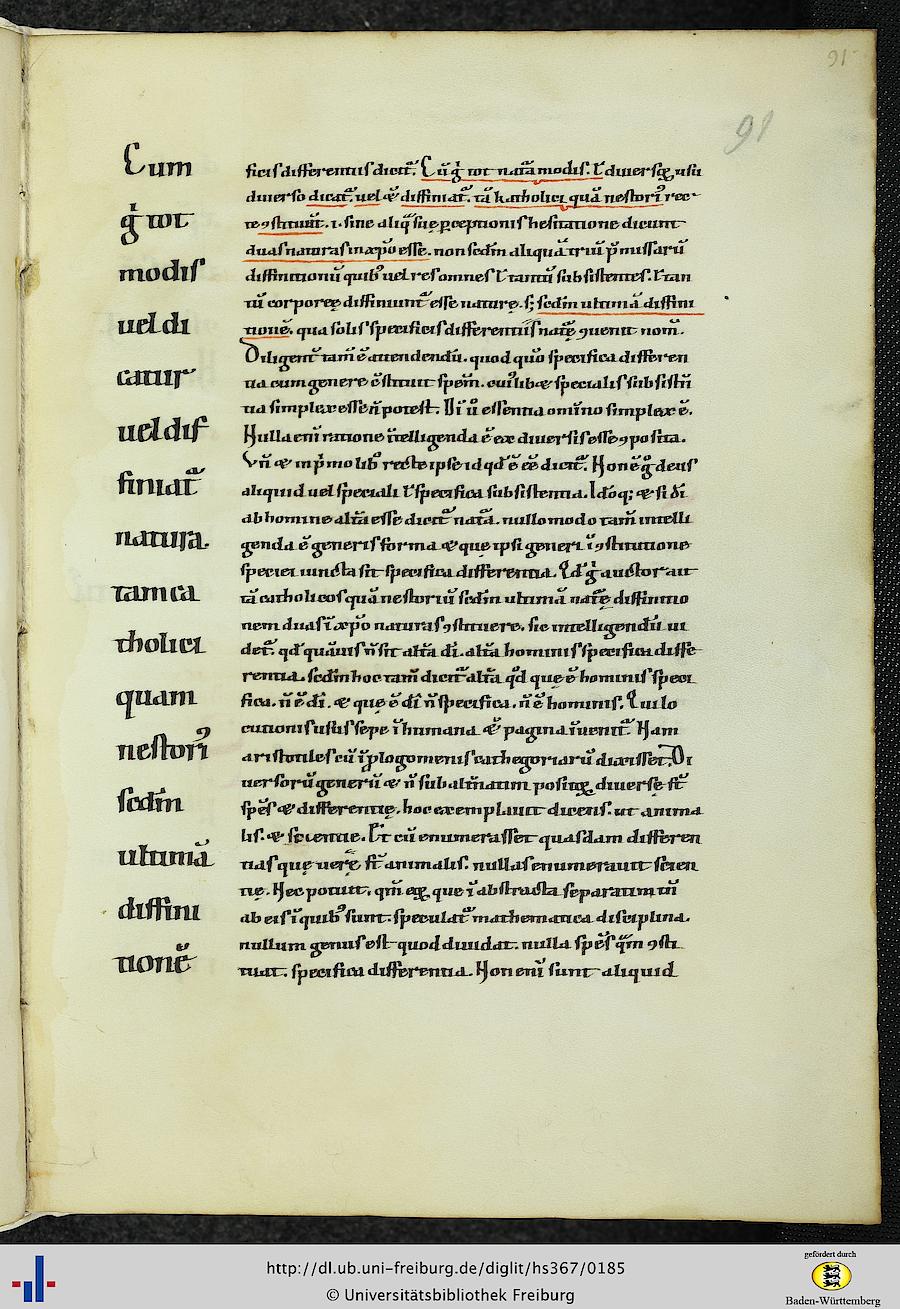 91
91
Cum
g̾ tot
modis
uel di
catur
uel dif
finiat᷑
natura.
tam ca
tholici
quam
nestorꝰ
scd̅m
ultimā
diffini
tionē
ficis differentiis dicit᷑. Cū g̾ tot nat̄a modis. ł diuersoꝝ usu
diuerso dicat᷑. uel &̄ diffiniat᷑. tā katholici quā nestoriꝰ rec
te ꝯstituūt. .i. sine aliq̄ suę ꝑceptionis hesitatione dicunt
duas naturas in xp̅o esse. non scd̅m aliquā triū p̄missarū
diffinitionū quibꝰ uel res omnes ł tantū subsistentes. ł tan
tū corporeę diffiniunt᷑ esse naturę. s; scd̅m ultimā diffini
tionē. qua solis specificis differentiis nat̄ę ꝯuenit nom̄.
Diligent᷑ tam̄ ē attendendū. quod quō specifica differen
tia cum genere ꝯ̄stituit spēm. cuiꝰlib& specialis subsistn̄
tia simplex esse n̄ potest. Di ů essentia omīno simplex ē.
Nulla enī ratione īntelligenda ē ex diuersis esse ꝯposita.
Vn̄ & in p̄mo libͦ recte ipse id qd̓ ē ēē dicit᷑. Non ē g̊ deus
aliquid uel speciali ł specifica subsistentia. Idōq; & si di
ab homine alt̄a esse dicit᷑ nat̄a. nullo modo tam̄ intelli
genda ē generis forma & que ipsi generi ī ꝯstitutione
speciei iuncta sit specifica differentia. Qd̓ g̾ auctor ait
tā catholicos quā nestoriū scd̅m ultimā nat̄ę diffinitio
nem duas ī xp̅o naturas ꝯstituere. sic intelligendū ui
det᷑. qd̓ quāuis n̄ sit alt̄a di. alt̄a hominis specifica diffe
rentia. scd̅m hoc tam̄ dicit᷑ alt̄a qd̓ que ē hominis speci
fica. n̄ ē di. & que ē di n̄ specifica. n̄ ē hominis. Qui lo
cutionis usus sepe ī humana &̄ pagina īuenit᷑ Nam
aristotiles cū ī plogomenis cathegoriarū dixisset. Di
uersorū generū & n̄ subalt̄natim positoꝝ diuersę st̄
spēs & differentię. hoc exemplauit dicens. ut anima
lis. & scientie. Et cū enumerasset quasdam differen
tias quę uerę st̄ animalis. nullas enumerauit scien
tię. Nec potuit. qm̄ eaꝝ que ī abstracta separatim
ab eis ī quibꝰ sunt. speculat᷑ mathematica disciplina.
nullum genus est quod diuidat. nulla spēs q̄m ꝯsti
tuat. specifica differentia. Non enī sunt aliquid
http://dl.ub.uni-freiburg.de/diglit/hs367/0185
© Universitätsbibliothek Freiburg
gefördert durch
Baden-Württemberg